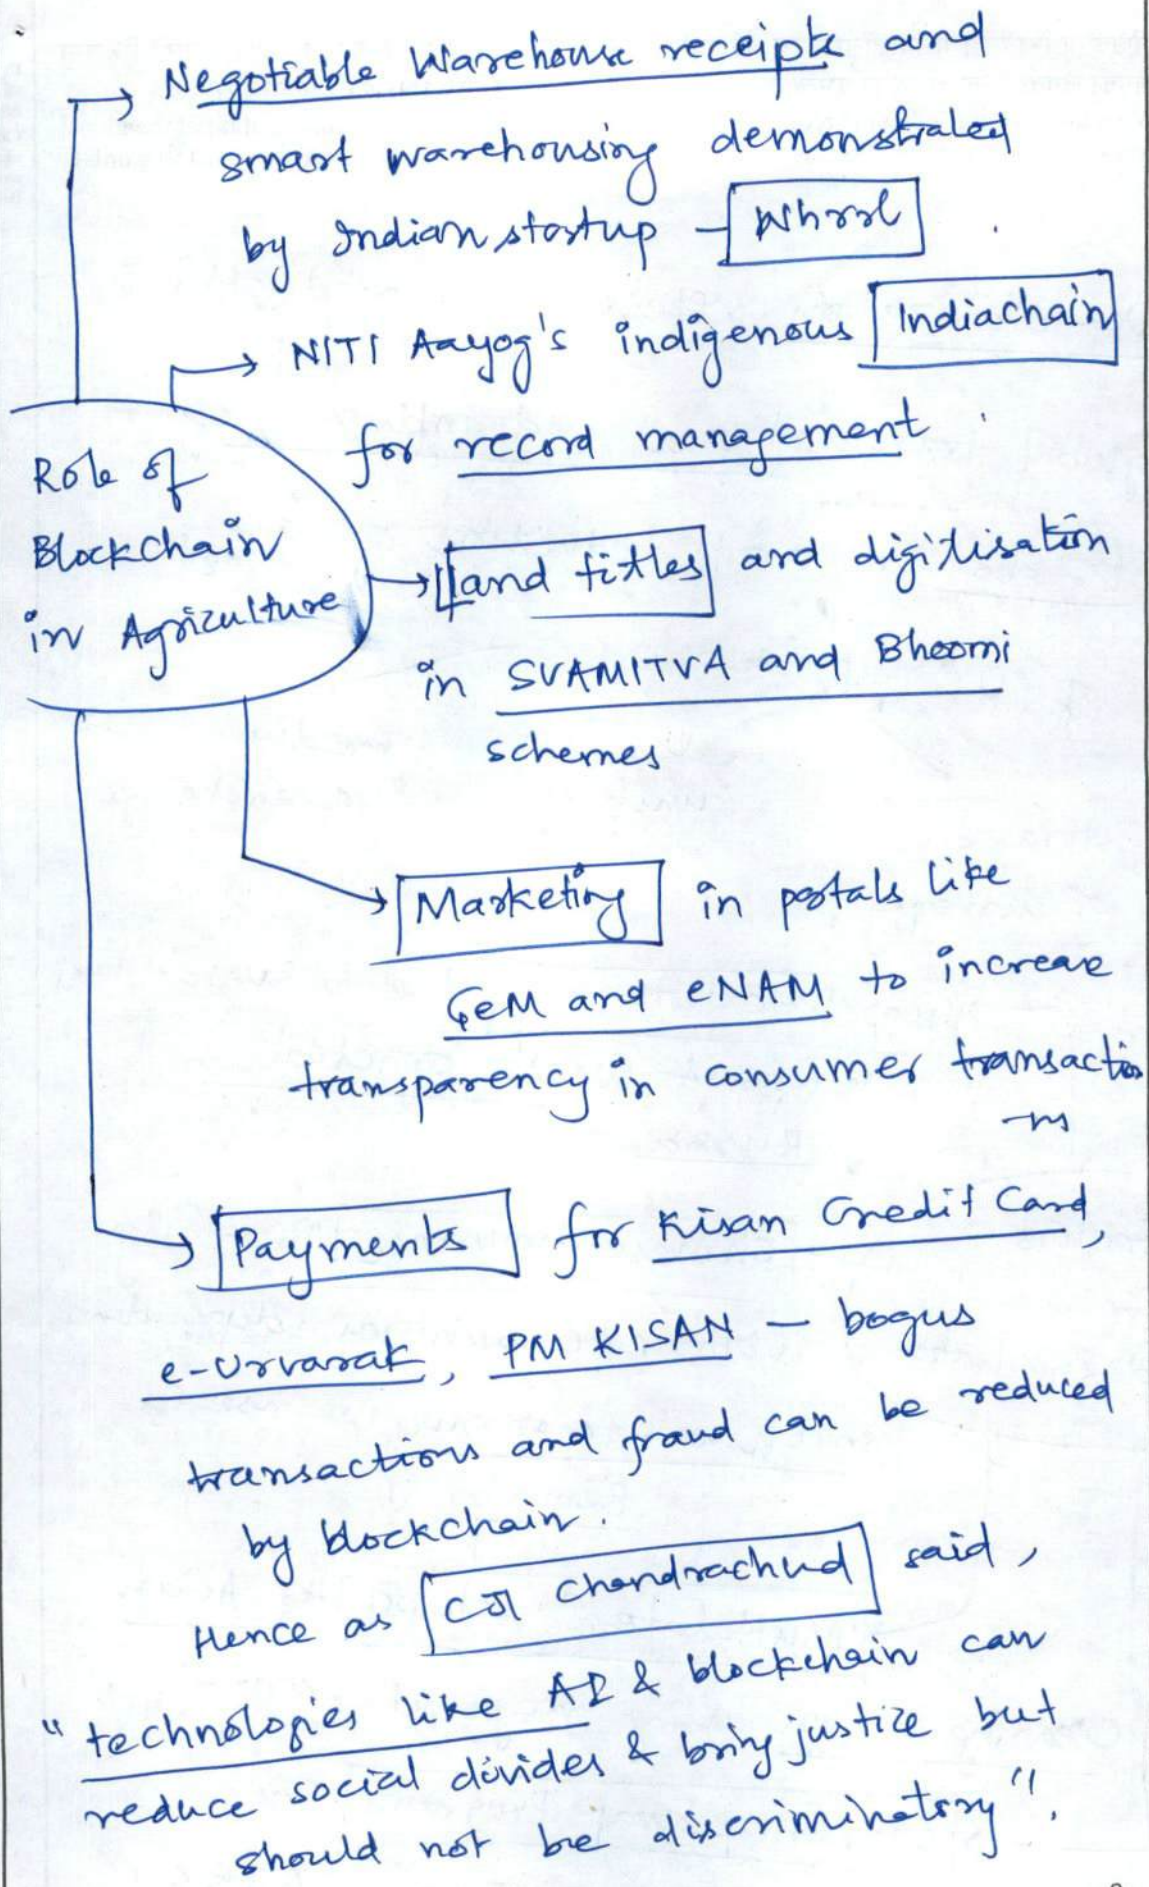 Negotiable Warehouse receipts and
smart warehousing demonstrated
by Indian startup - Whrrl
NITI Aayog's indigenous Indiachain
for record management
Role of
Blockchain
in Agriculture
Land titles and digitisation
in SVAMITVA and Bhoomi
schemes
Marketing in portals like
GeM and eNAM to increase
transparency in consumer transactio
-ns
Payments for Kisan Credit Card,
e-Urvarak, PM KISAN - bogus
transactions and fraud can be reduced
by blockchain.
Hence as CJI Chandrachud said,
"technologies like AI & blockchain can
reduce social divides & bring justice but
should not be discriminatory".